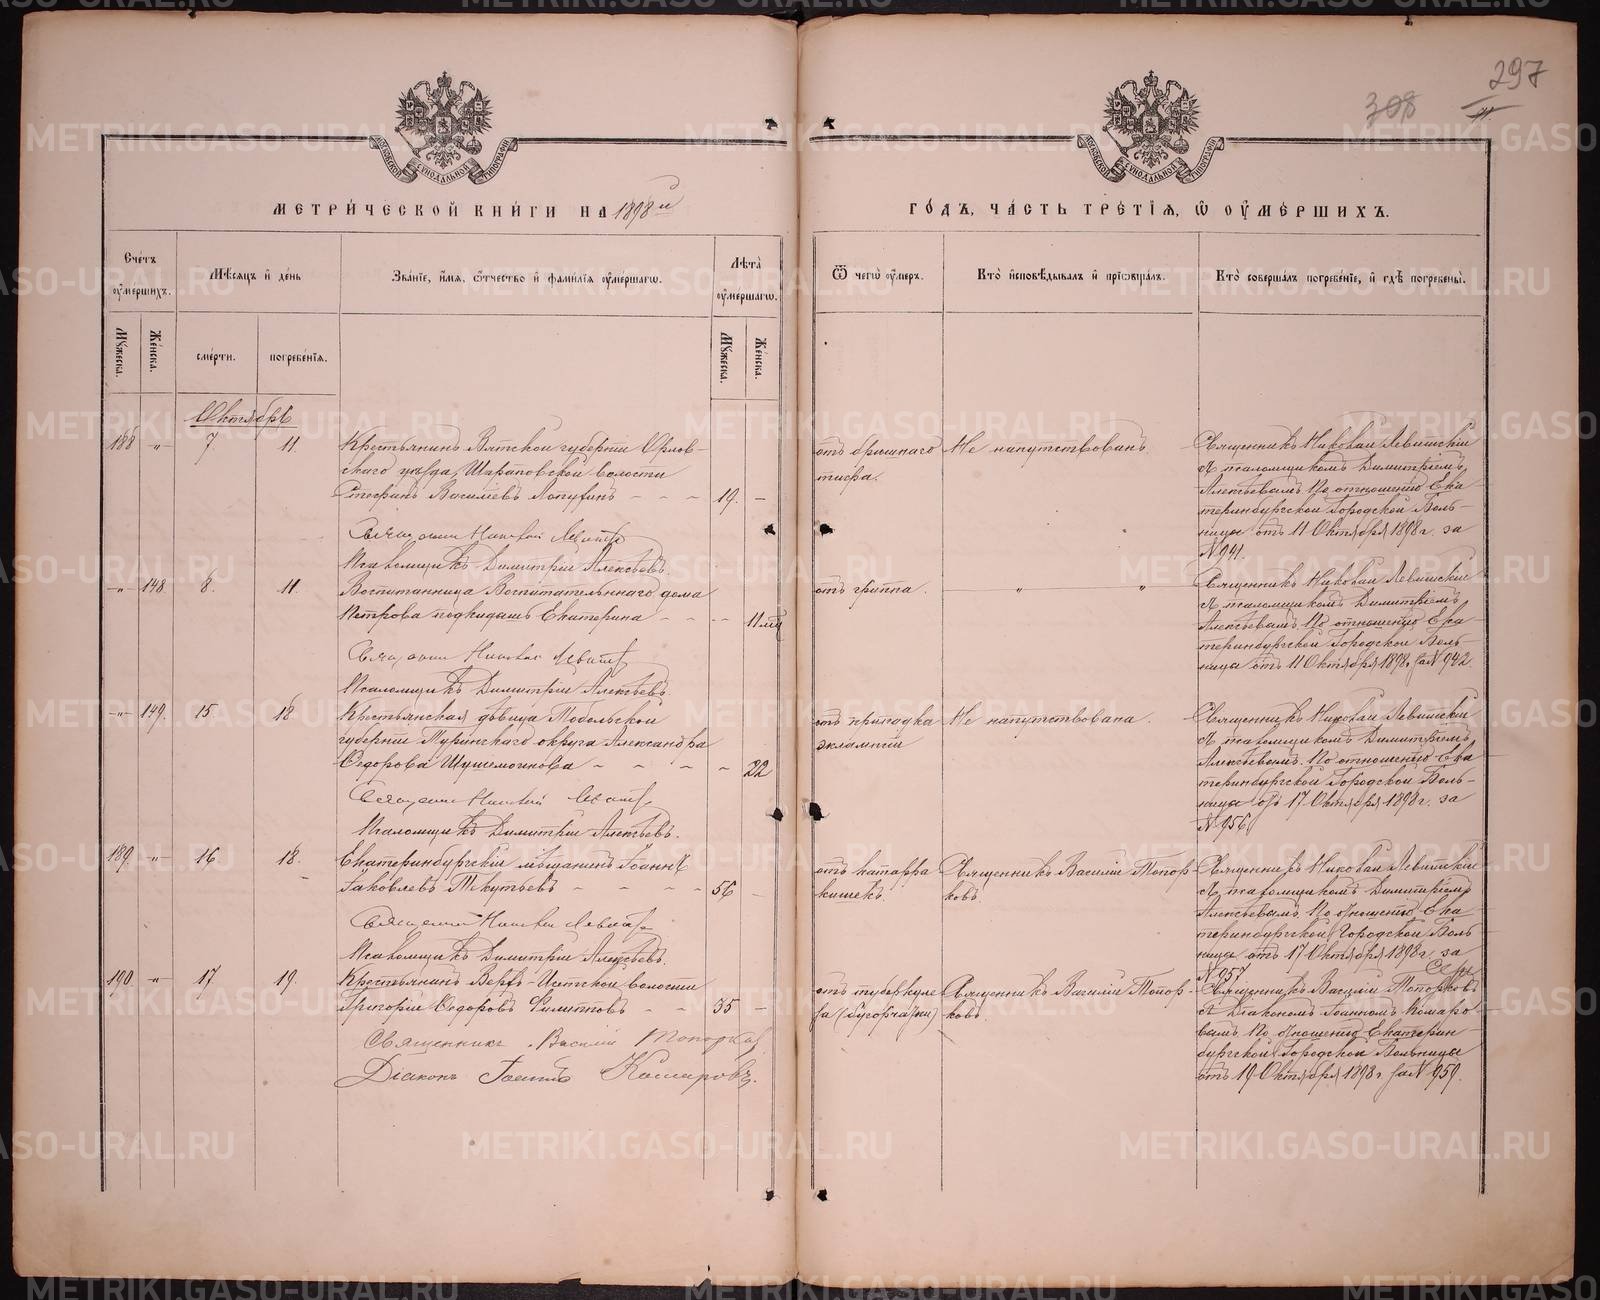 297
308
МЕТРИ́ЧЕСКОЙ КНИ́ГИ НА 1898 й
ГО́ДЪ, ЧА́СТЬ ТРЕ́ТІЯ, Ѡ ОУМЕ́РШИХЪ.
Сче́тъ оуме́ршихъ.
Мꙋжеска.
Же́нска.
Мѣ́сяцъ и́ де́нь
сме́рти.
погребе́нія.
Зва́ніе, и́мя, ѻ́тчество и́ фами́лія оуме́ршагѡ.
Лѣта̀ оуме́ршагѡ.
Мꙋжеска.
Же́нска.
Ѿ чегѡ̀ оу́меръ.
Кто̀ и҆сповѣ́дывалъ и́ прїѡбща́лъ.
Кто̀ соверша́лъ погребе́ніе, и́ гдѣ̀ погребены̀.
Октябрь
188 „ 7. 11. Крестьянинъ Вятской губерніи Орлов-
скаго уѣзда, Шараповской волости
Стефанъ Василіевъ Лопугинъ - - - 19. -
отъ брюшнаго
тифа.
Не напутствованъ.
Священникъ Николай Левитскій
съ псаломщикомъ Димитріемъ
Алексѣевымъ. По отношенію Ека-
теринбургской Городской Боль-
ницы отъ 11 Октября 1898 г. за
№ 941.
Священникъ Николай Левитск
Псаломщикъ Димитрій Алексѣевъ.
-„- 148 8. 11. Воспитанница Воспитательнаго дома
Петрова подкидышъ Екатерина - - - 11 мѣс
отъ гриппа.
„ „
Священникъ Николай Левитскій
съ псаломщикомъ Димитріемъ
Алексѣевымъ. По отношенію Ека-
теринбургской Городской Боль-
ницы отъ 11 Октября 1898 г. за № 942.
Священник Николай Левитск
Псаломщикъ Димитрій Алексѣевъ.
-„- 149. 15 18 Крестьянская дѣвица Тобольской
губерніи Туринскаго округа Александра
Ѳедорова - - - - 22
отъ припадка
эклампсіи
Не напутствована.
Священникъ Николай Левитскій
съ псаломщикомъ Димитріемъ
Алексѣевымъ. По отношенію Ека-
теринбургской Городской Боль-
ницы отъ 17 Октября 1898 г. за
№ 956.
Священник Николай Левитск
Псаломщикъ Димитрій Алексѣевъ.
189. „ 16 18. Екатеринбургскій мѣщанинъ Іоаннъ
Іаковлевъ Текутьевъ - - - - 56 -
отъ катарра
кишекъ.
Священникъ Василій Топор-
ковъ.
Священникъ Николай Левитскій
съ псаломщикомъ Димитріемъ
Алексѣевымъ. По отношенію Ека
теринбургской Городской Боль
ницы отъ 17 Октября 1898 г. за
№ 957
Священник Николай Левитск
Псаломщикъ Димитрій Алексѣевъ.
190 „ 17 19. Крестьянинъ Верхъ-Исетской волости
Григорій Ѳедоровъ Филипповъ - - 35 -
отъ туберкуле
за (бугорчатки)
Священникъ Василій Топор-
ковъ.
Священникъ Василій Топорковъ
съ Діакономъ Іоанномъ Комаро-
вымъ. По отношенію Екатерин-
бургской Городской Больницы
отъ 19 Октября 1898 г. за № 959.
Священникъ Василій Топорков
Діаконъ Іоаннъ Комаровъ.